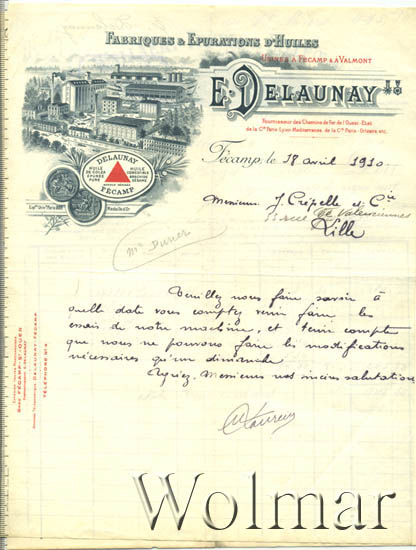 FABRIQUES & EPURATIONS D'HUILES
USINES A FÉCAMP & A VALMONT
E. DELAUNAY
Fournisseur des Chemins de Fer de l'Ouest-Etat
de la Cie Paris-Lyon-Méditerranée, de la Cie Paris-Orléans etc.
Fécamp, le 18 avril 1910
Messieurs J. Crépelle et Cie
rue de Valenciennes
Lille
DELAUNAY
HUILE DE COLZA ÉPURÉE PURE
HUILE COMESTIBLE
SÉSAME
FÉCAMP
Médaille d'Or
Mr Durier
Veuillez nous faire savoir à
quelle date vous comptez venir faire les
essais de notre machine, et tenir compte
que nous ne pouvons faire les modifications
nécessaires qu'un dimanche
Agréez, Messieurs nos sincères salutations
Gare FÉCAMP-St-OUEN
DELAUNAY-FÉCAMP
TÉLÉPHONE No 4
Wolmar